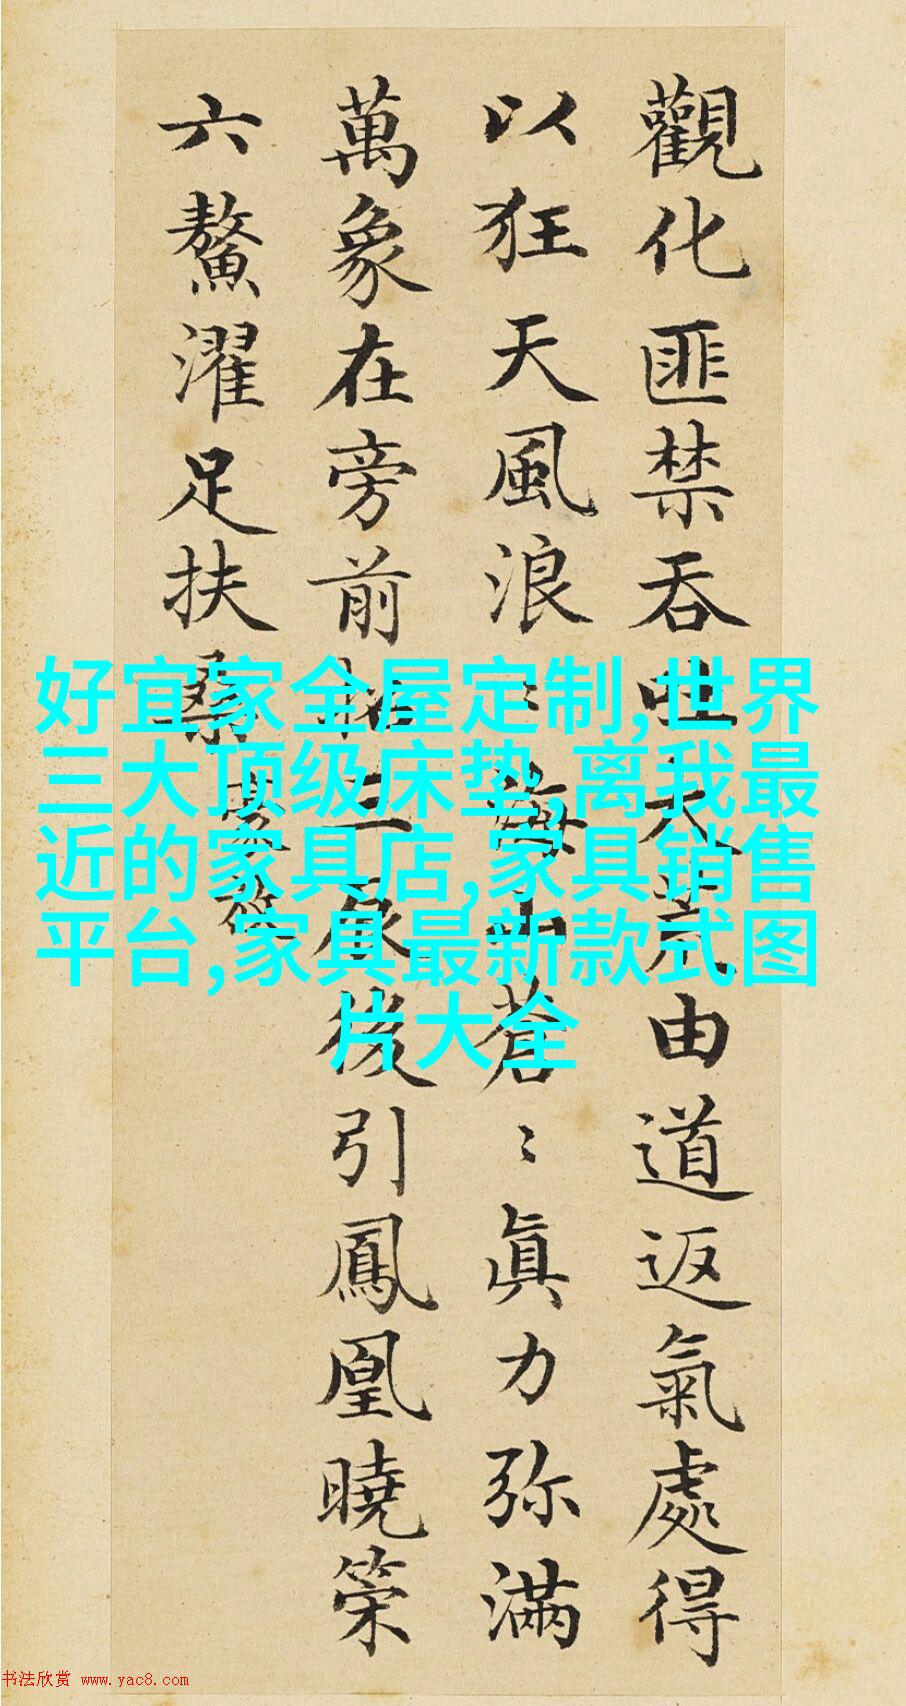 觀化匪禁吞吐大荒由道返氣處得
以狂天風浪〻海山蒼〻真力弥滿
萬象在旁前招三辰後引鳳凰曉策
六鰲濯足扶桑
好宜家全屋定制,世界
三大顶级床垫,离我最
近的家具店,家具销售
平台,家具最新款式图
片大全
书法欣赏 www.yac8.com